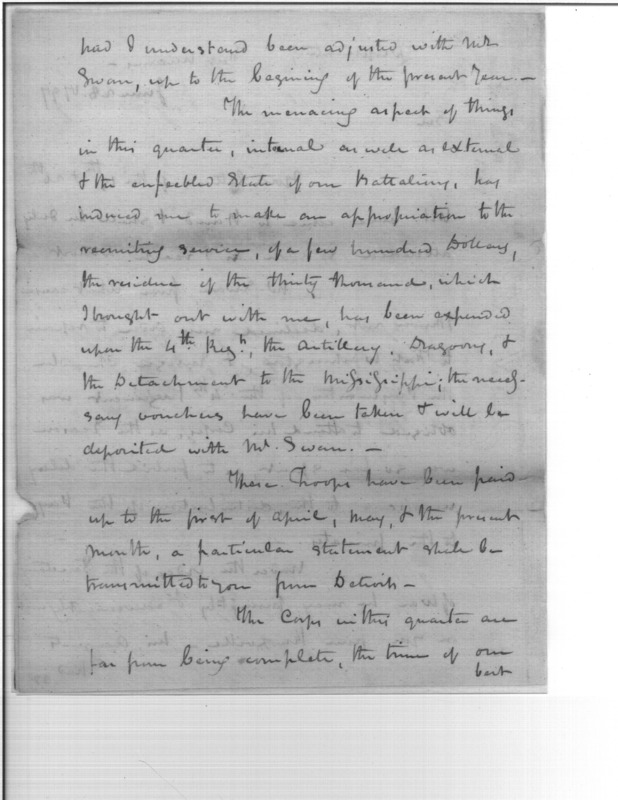 had I understand been adjusted with Mr
Swan, up to the begining of the present Year.—
The menacing aspect of things
in this quarter, internal as well as external
& the enfeebled State of our Battalions, has
induced me to make an appropriation to the
recruiting service, of a few hundred Dollars,
the residue of the thirty thousand, which
I brought out with me, has been expended
upon the 4th Regt, the Artillery, Dragoons, &
the Detachment to the Mississippi; the neces-
sary vouchers have been taken & will be
deposited with Mr. Swan. —
These Troops have been paid
up to the first of April, May, & the present
month, a particular statement shall be
transmitted to you from Detroit —
The Corps in this quarter are
far from being complete, the time of our
best